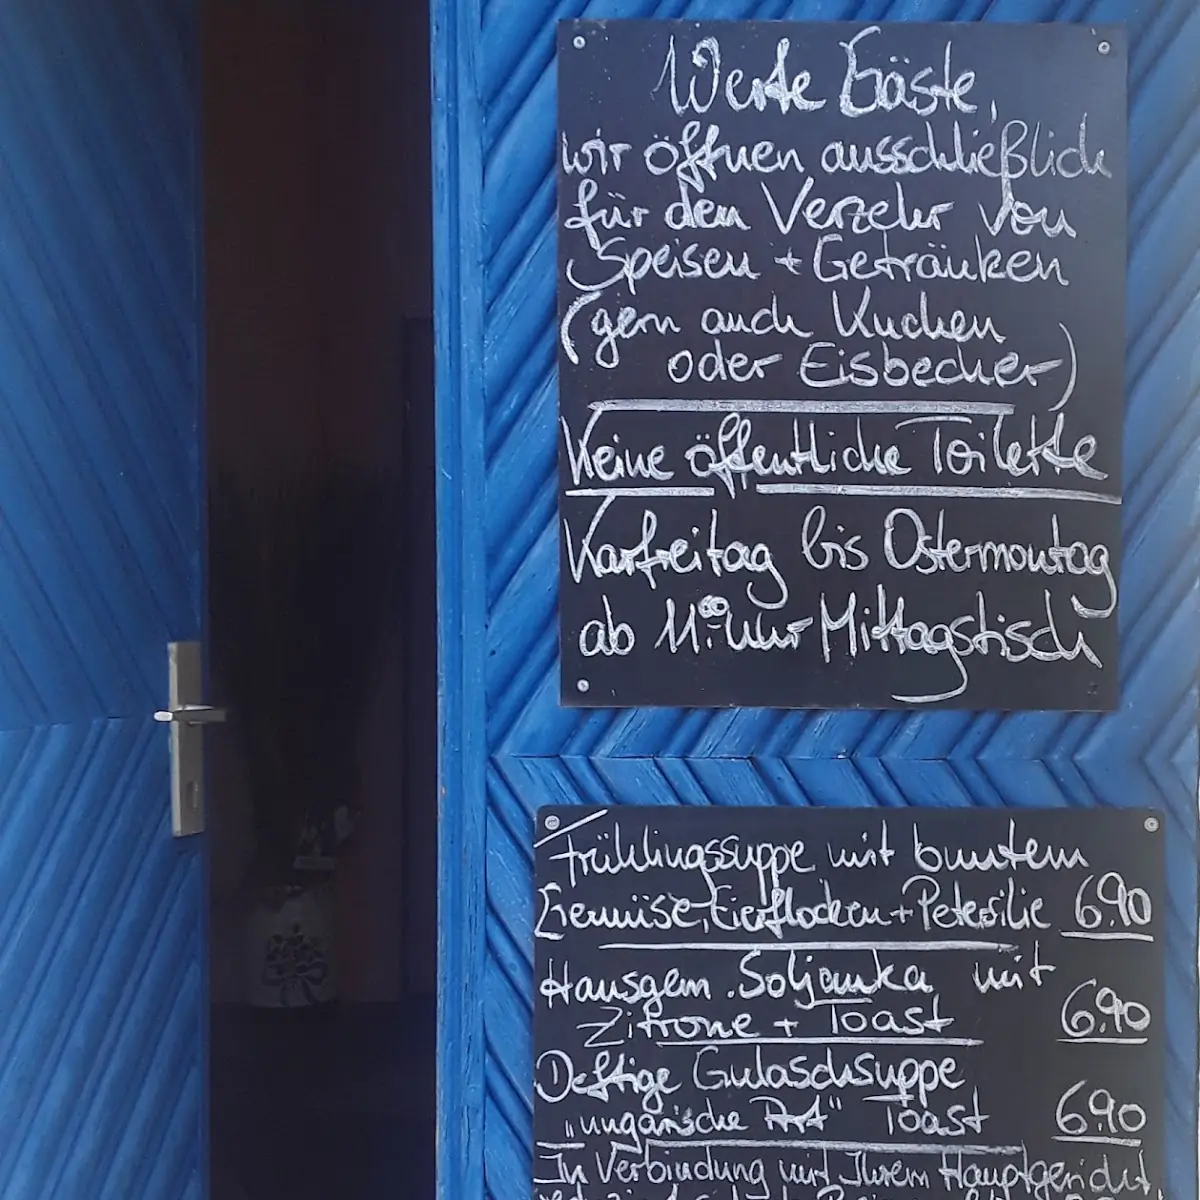 Werte Gäste,
wir öffnen ausschließlich
für den Verzehr von
Speisen + Getränken
(gern auch Kuchen
oder Eisbecher)
Keine öffentliche Toilette
Karfreitag bis Ostermontag
ab 11:00 Uhr Mittagstisch
Frühlingssuppe mit buntem
Gemüse, Eierflocken + Petersilie 6.90
Hausgem. Soljanka mit
Zitrone + Toast 6.90
Deftige Gulaschsuppe
„ungarische Art" Toast 6.90
In Verbindung mit Ihrem Hauptgericht